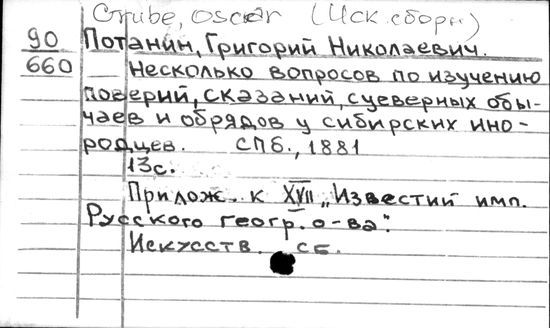 Strube, Oscar (Иск. сборн)
90 Потанин, Григорий Николаевич.
660 Несколько вопросов по изучению
поверий, сказаний, суеверных обы-
чаев и обрядов у сибирских ино-
родцев. СПб., 1881
13с.
Прилож. к XVII „Известий имп.
Русского геогр. о-ва".
Искусств. сб.